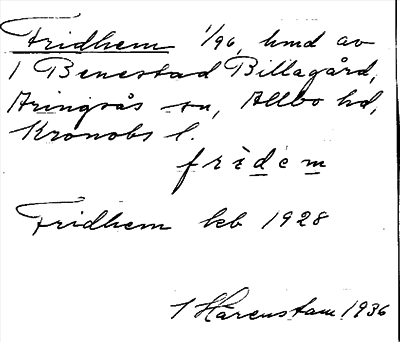 Fridhem 1/96, hmd av
1 Benestad Billagård,
Aringsås sn, Allbo hd,
Kronobs l.
fridem
Fridhem kb 1928
J Hårenstam 1936